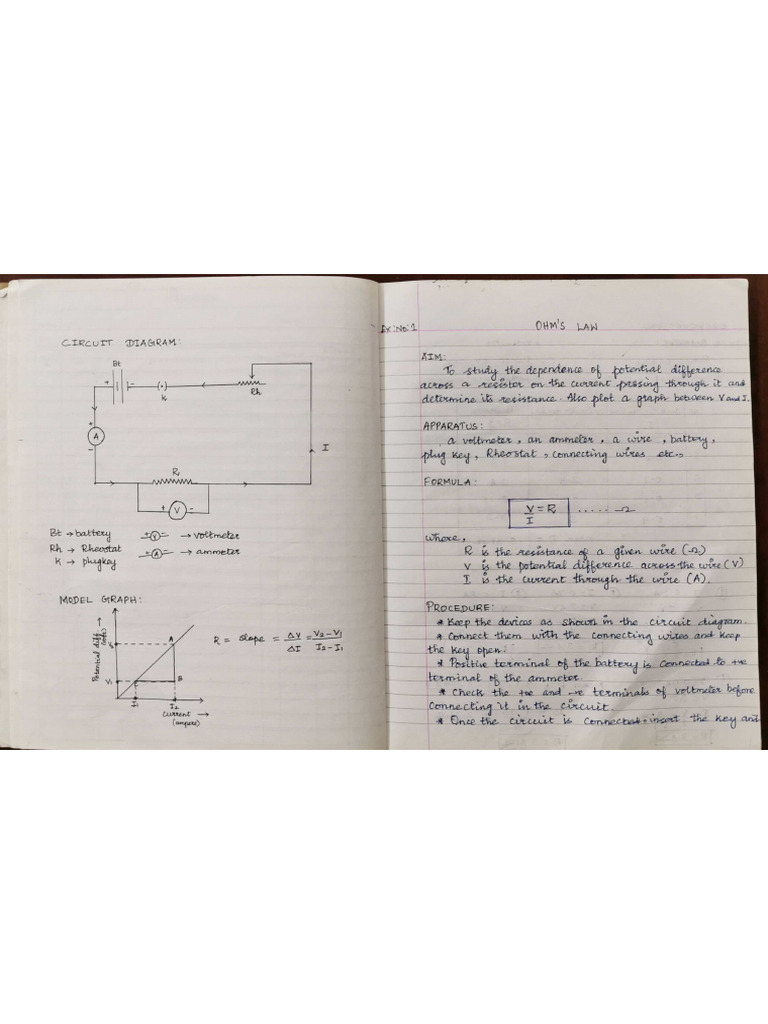 CIRCUIT DIAGRAM:
Bt
+ -
K
Rh
+
A
-
I
R
+ V -
Bt → battery
+ V - → voltmeter
Rh → Rheostat
+ A - → ammeter
K → plugkey
MODEL GRAPH:
Potential diff →
A
R = slope = ΔV/ΔI = V2-V1/I2-I1
V1
B
I1 I2
Current →
(ampere)
Ex:No:1
OHM'S LAW
AIM:
To study the dependence of potential difference
across a resistor on the current passing through it and
determine its resistance. Also plot a graph between V and I.
APPARATUS:
a voltmeter, an ammeter, a wire, battery,
plug key, Rheostat, connecting wires etc.,
FORMULA:
V/I = R ......Ω
where,
R is the resistance of a given wire (Ω)
V is the potential difference across the wire (V)
I is the current through the wire (A).
PROCEDURE:
* Keep the devices as shown in the circuit diagram.
* Connect them with the connecting wires and keep
the key open.
* Positive terminal of the battery is connected to +ve
terminal of the ammeter.
* Check the +ve and -ve terminals of voltmeter before
connecting it in the circuit.
* Once the circuit is connected insert the key and